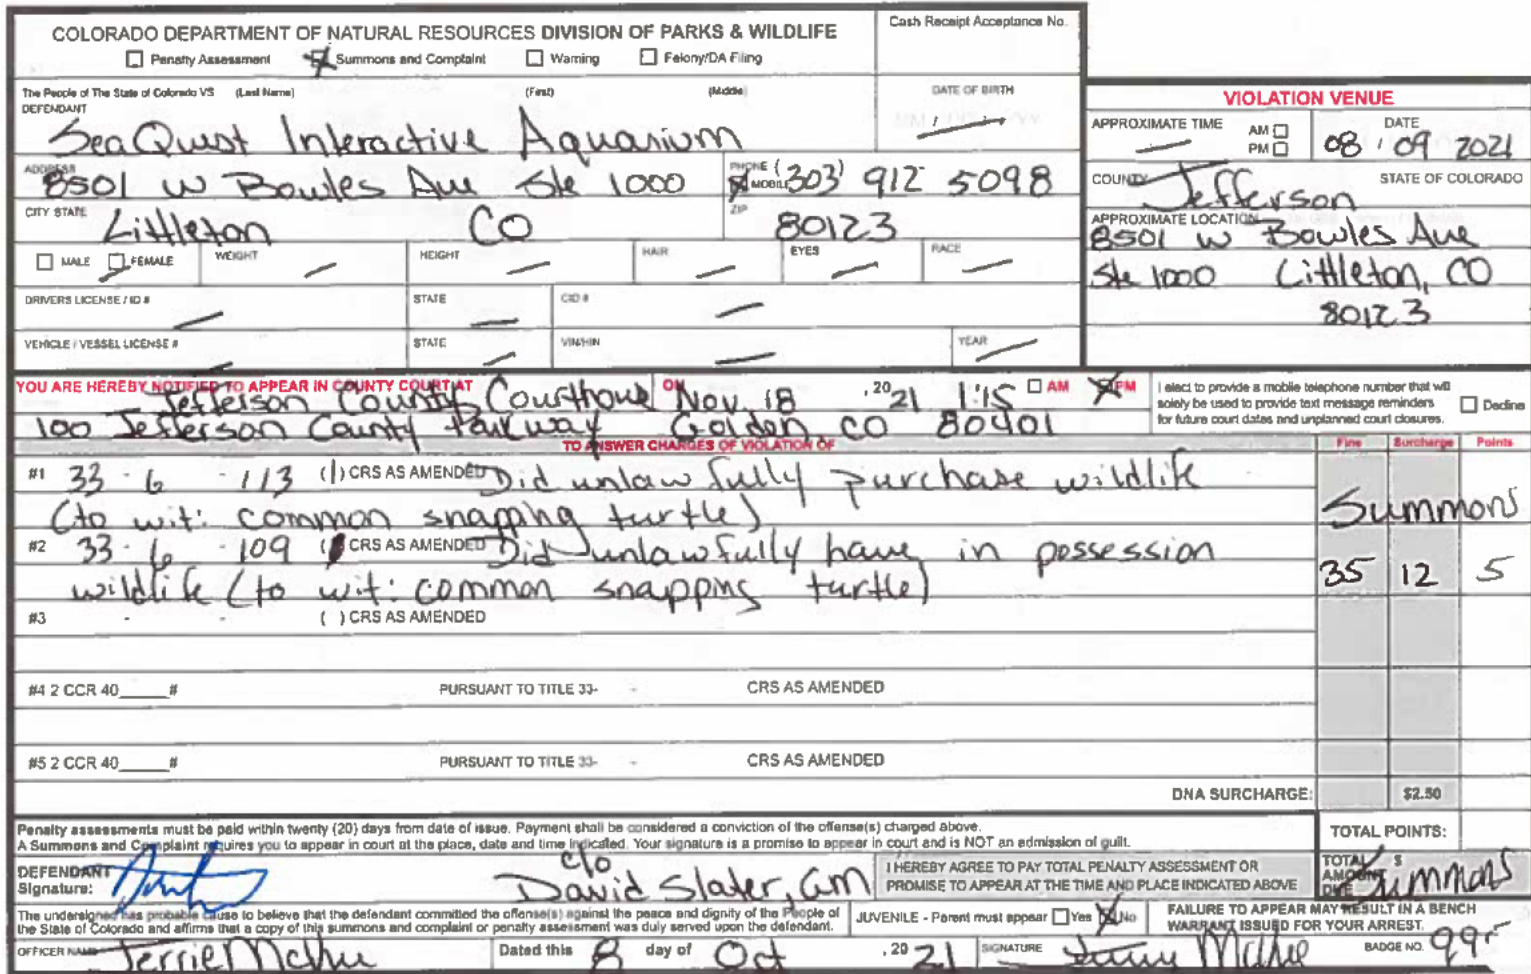 COLORADO DEPARTMENT OF NATURAL RESOURCES DIVISION OF PARKS & WILDLIFE
Cash Receipt Acceptance No.
Penalty Assessment Summons and Complaint Warning Felony/DA Filing
The People of The State of Colorado VS (Last Name) (First) (Middle) DATE OF BIRTH
DEFENDANT
SeaQuest Interactive Aquarium
ADDRESS 8501 W Bowles Ave Ste 1000 PHONE MOBILE (303) 912 5098
CITY STATE Littleton CO ZIP 80123
MALE FEMALE WEIGHT HEIGHT HAIR EYES RACE
DRIVERS LICENSE / ID # STATE CID #
VEHICLE / VESSEL LICENSE # STATE VIN/HIN YEAR
VIOLATION VENUE
APPROXIMATE TIME AM PM DATE 08 09 2021
COUNTY Jefferson STATE OF COLORADO
APPROXIMATE LOCATION
8501 W Bowles Ave
Ste 1000 Littleton, CO
80123
YOU ARE HEREBY NOTIFIED TO APPEAR IN COUNTY COURT AT Jefferson County Courthouse ON Nov. 18 , 20 21 1:15 AM PM
100 Jefferson County Parkway Golden, CO 80401
I elect to provide a mobile telephone number that will
solely be used to provide text message reminders
for future court dates and unplanned court closures.
Decline
TO ANSWER CHARGES OF VIOLATION OF Fine Surcharge Points
#1 33 - 6 - 113 (1) CRS AS AMENDED Did unlawfully purchase wildlife
(to wit: common snapping turtle) Summons
#2 33 - 6 - 109 ( CRS AS AMENDED Did unlawfully have in possession
wildlife (to wit: common snapping turtle) 35 12 5
#3 - - ( ) CRS AS AMENDED
#4 2 CCR 40_____# PURSUANT TO TITLE 33- - CRS AS AMENDED
#5 2 CCR 40_____# PURSUANT TO TITLE 33- - CRS AS AMENDED
DNA SURCHARGE: $2.50
Penalty assessments must be paid within twenty (20) days from date of issue. Payment shall be considered a conviction of the offense(s) charged above.
A Summons and Complaint requires you to appear in court at the place, date and time indicated. Your signature is a promise to appear in court and is NOT an admission of guilt.
TOTAL POINTS:
DEFENDANT
Signature: c/o David Slater, GM
I HEREBY AGREE TO PAY TOTAL PENALTY ASSESSMENT OR
PROMISE TO APPEAR AT THE TIME AND PLACE INDICATED ABOVE
TOTAL AMOUNT DUE $ Summons
The undersigned has probable cause to believe that the defendant committed the offense(s) against the peace and dignity of the People of
the State of Colorado and affirms that a copy of this summons and complaint or penalty assessment was duly served upon the defendant.
JUVENILE - Parent must appear Yes No
FAILURE TO APPEAR MAY RESULT IN A BENCH
WARRANT ISSUED FOR YOUR ARREST.
OFFICER NAME Jerrie McKee Dated this 8 day of Oct , 20 21 SIGNATURE Jerrie McKee BADGE NO. 995